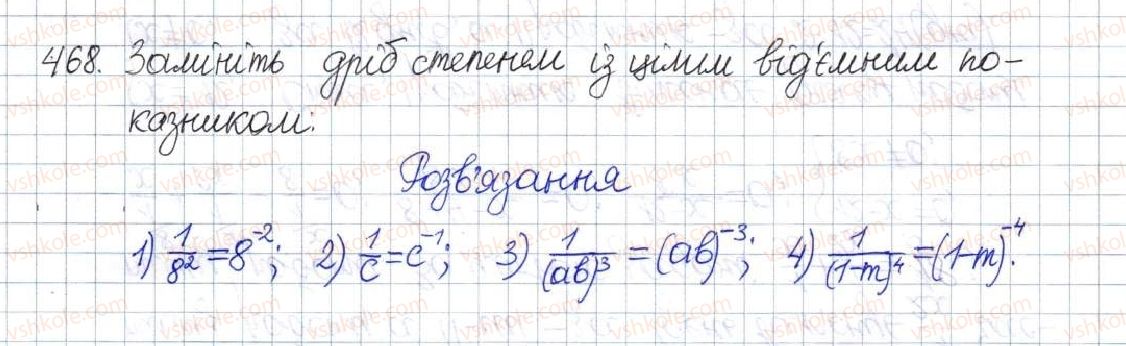 468. Замініть дріб степенем із цілим від'ємним по-
казником:
Розв'язання
1) 1/8² = 8⁻²; 2) 1/c = c⁻¹; 3) 1/(ab)³ = (ab)⁻³; 4) 1/(1-m)⁴ = (1-m)⁻⁴.